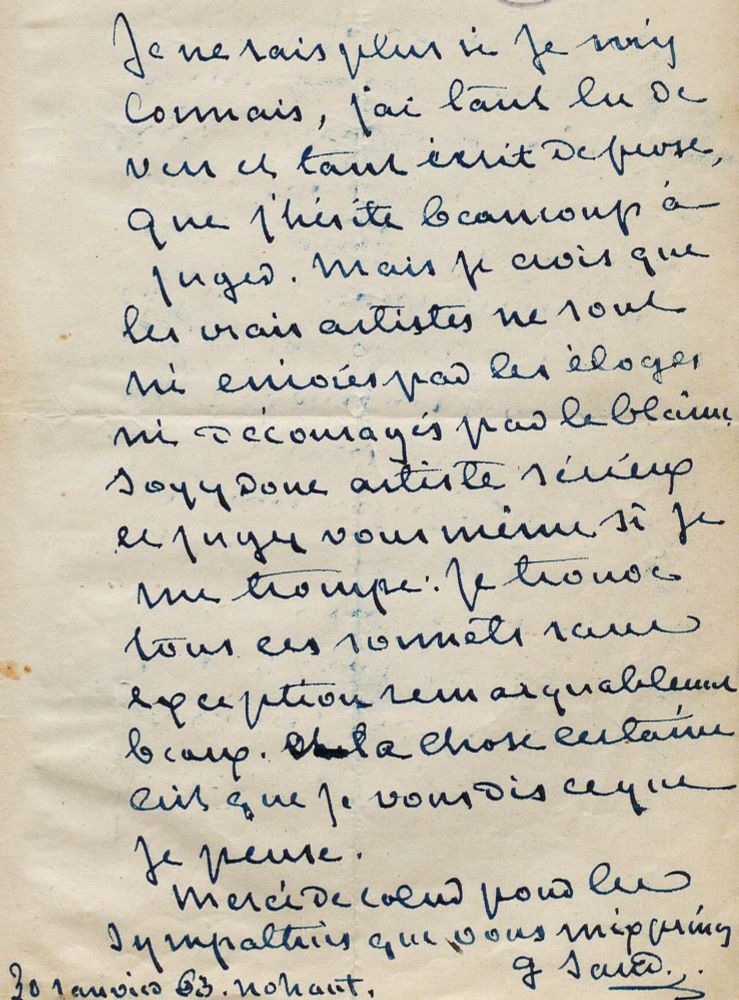 Je ne sais plus si je m'y
connais, j'ai tant lu de
vers et tant écrit de prose,
que j'hésite beaucoup à
juger. Mais je crois que
les vrais artistes ne sont
ni enivrés par les éloges
ni découragés par le blâme.
Soyez donc artiste sérieux
et jugez vous même si je
me trompe: je trouve
tous ces sonnets sans
exception remarquablement
beaux. la chose certaine
c'est que je vous dis ce que
je pense.
Merci de cœur pour les
sympathies que vous m'exprimez
G Sand.
30 janvier 63. Nohant.